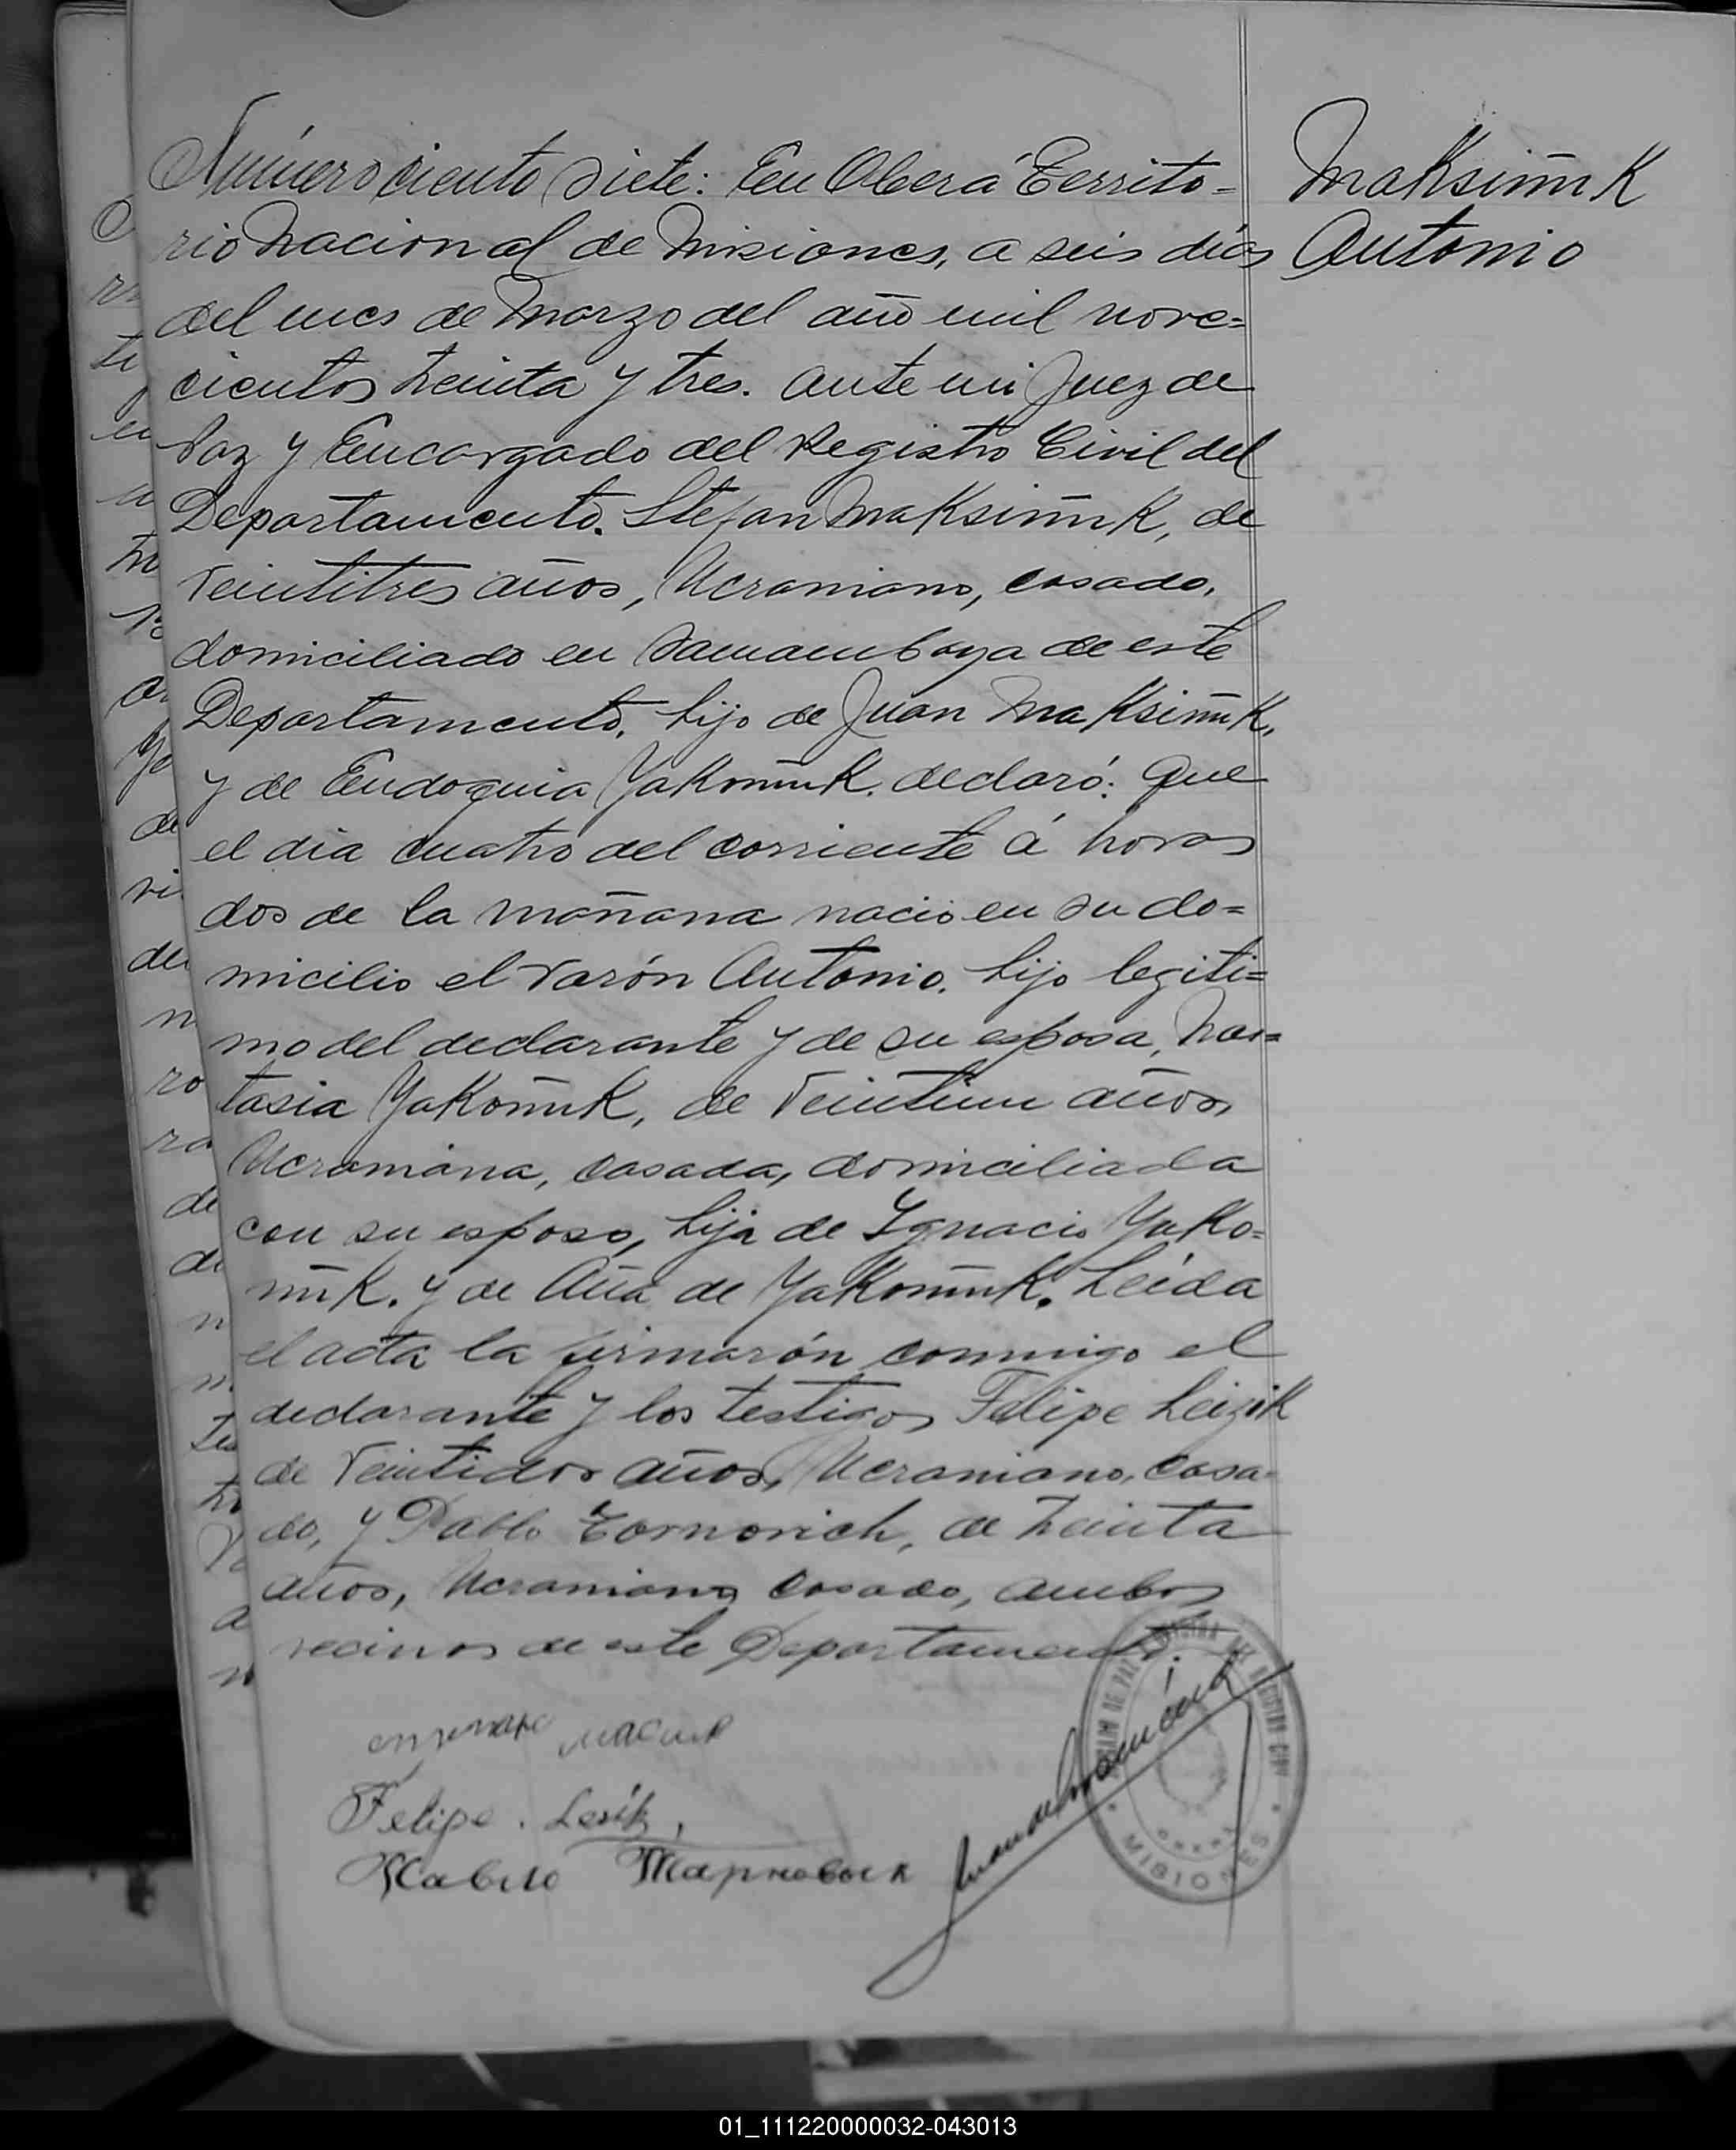 Número ciento siete: En Oberá Territo-
rio Nacional de Misiones, a seis dias
del mes de Marzo del año mil nove=
cientos treinta y tres. ante mi Juez de
Paz y Encargado del Registro Civil del
Departamento. Stefan Maksimuk, de
veintitres años, Ucraniano, casado,
domiciliado en Samambaya de este
Departamento, hijo de Juan Maksimuk,
y de Eudoquia Yakomuk. declaró: Que
el dia cuatro del corriente á horas
dos de la mañana nació en su do=
micilio el varón Antonio. hijo legiti=
mo del declarante y de su esposa, Nas=
tasia Yakomuk, de veintiun años
Ucraniana, casada, domiciliada
con su esposo, hija de Ignacio Yako=
muk. y de Ana de Yakomuk. Leida
el acta la firmarón conmigo el
declarante y los testigos Felipe Leizik
de veintidos años, Ucraniano, casa=
do, y Pablo Tornovich, de treinta
años, Ucraniano casado, ambos
vecinos de este Departamento.
Felipe. Lesik,
Павло Тарновск
Maksimuk
Antonio
MISIONES
01_111220000032-043013